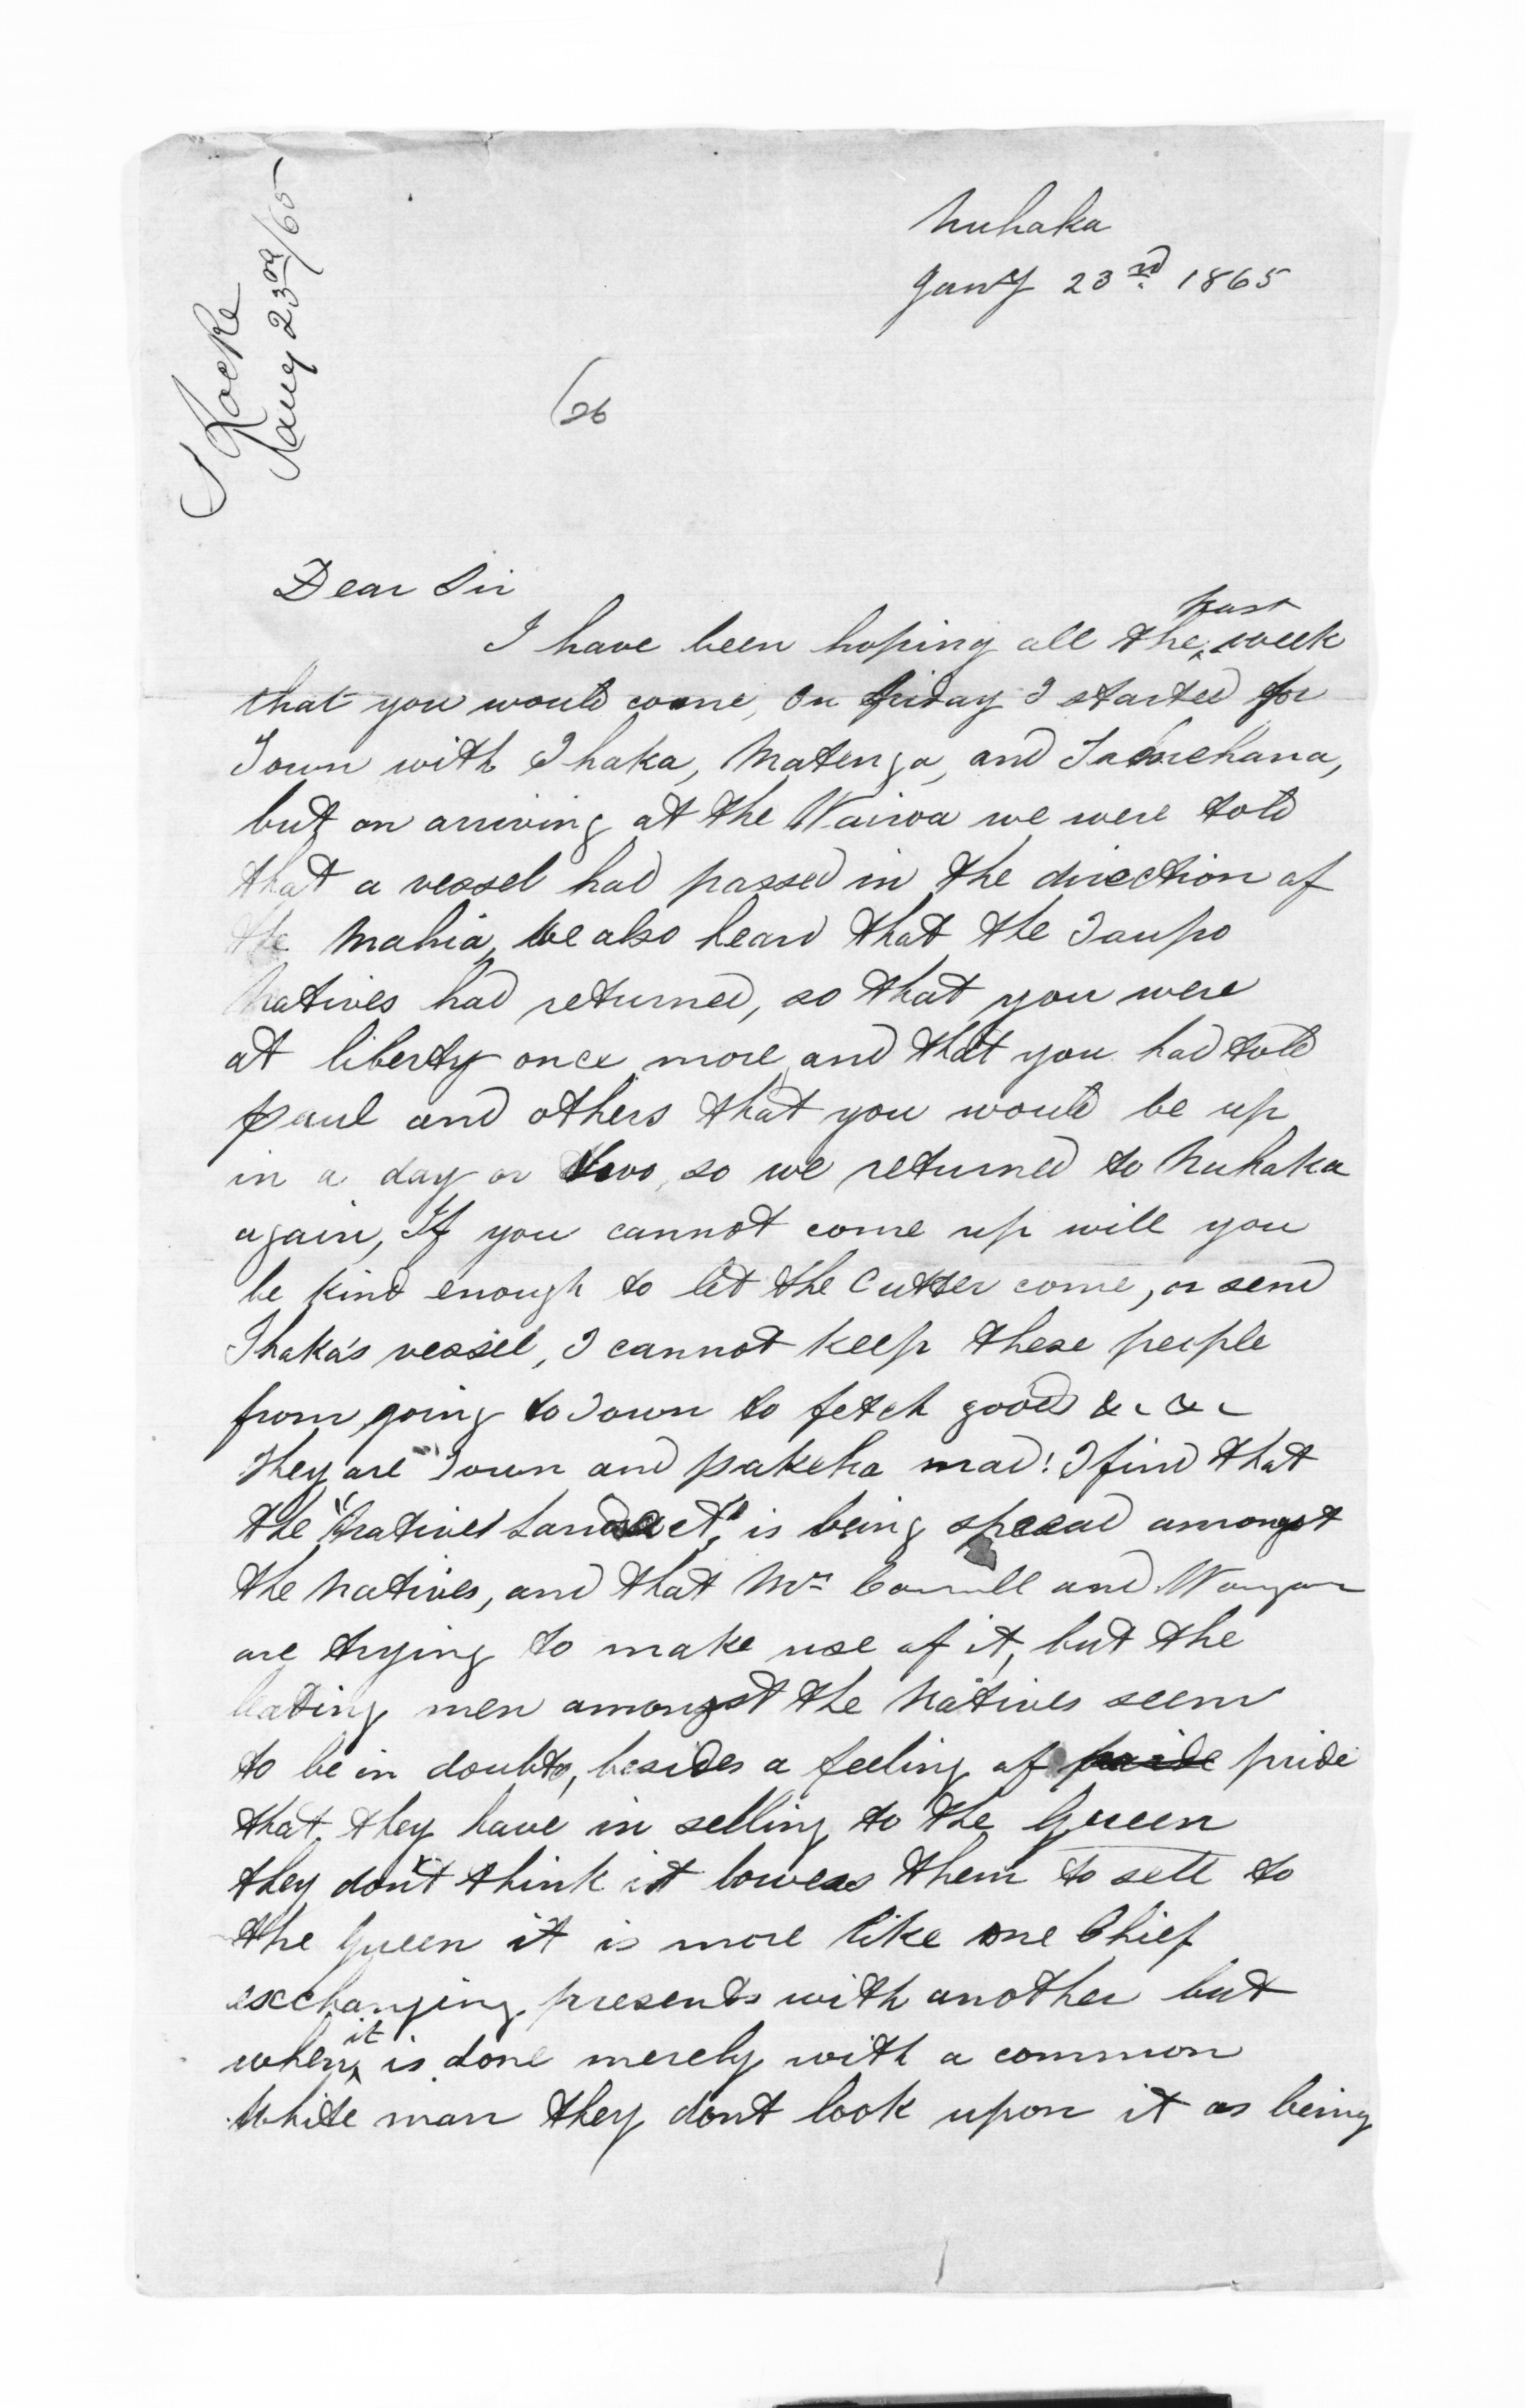 S Locke
Jany 23rd/65
Nuhaka
Jany 23rd 1865
26
Dear Sir
I have been hoping all the past week
that you would come, On friday I started for
Town with Ihaka, Matenga, and Tamehana,
but on arriving at the Wairoa we were told
that a vessel had passed in the direction of
the Mahia, We also heard that the Taupo
Natives had returned, so that you were
at liberty once more, and that you had told
paul and others that you would be up
in a day or two, so we returned to Nuhaka
again, If you cannot come up will you
be kind enough to let the Cutter come, or send
Ihaka's vessel, I cannot keep these people
from going to Town to fetch goods &c &c
They are Town and pakeha mad! I find that
the "Natives Land act", is being spread amongst
the Natives, and that Mr Carroll and
are trying to make use of it, but the
leading men amongst the Natives seem
to be in doubts, besides a feeling of pride pride
that they have in selling to the Queen
they don't think it lowers them to sell to
the Queen it is more like one Chief
exchanging presents with another but
when it is done merely with a common
White man they dont look upon it as being